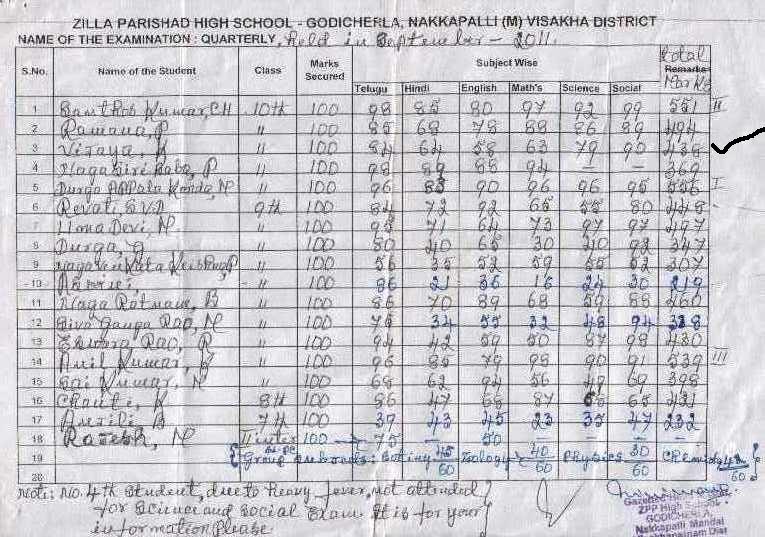 ZILLA PARISHAD HIGH SCHOOL - GODICHERLA, NAKKAPALLI (M) VISAKHA DISTRICT
NAME OF THE EXAMINATION : QUARTERLY, held in September - 2011.
S.No. Name of the Student Class Marks Secured Subject Wise Total Remarks Marks
Telugu Hindi English Math's Science Social
1 Santhosh Kumar, CH 10th 100 98 85 80 97 92 99 551 II
2 Ramana, P " 100 85 68 78 88 86 89 494
3 Vijaya, " 100 84 64 58 63 79 90 438
4 Nagagiri Babu, P " 100 98 89 88 94 - - 369
5 Durga Appala Konda, N " 100 96 83 90 96 96 95 556 I
6 Revati 9th 100 84 72 92 65 55 80 448
7 Uma Devi, N " 100 95 71 64 73 97 97 497
8 Durga, G " 100 80 40 65 30 40 92 347
9 " 100 56 35 52 59 55 52 307
10 " 100 86 21 36 16 24 30 219
11 Naga Ratnam, B " 100 86 70 89 68 59 88 460
12 Siva Ganga Rao, N " 100 75 34 55 32 48 94 338
13 Eswara Rao, R " 100 94 42 59 50 87 98 430
14 Anil Kumar, " 100 96 85 79 98 90 91 539 III
15 Sai Kumar, N " 100 68 62 94 56 49 69 398
16 8th 100 86 47 66 87 65 431
17 Anjili, B 7th 100 39 43 45 23 35 47 232
18 Rajesh, N II inter 100 → 75 - 50 - - -
19 Group subjects: Botiny 45/60 Zoology 40/60 Physics 30/60 Chemistry /60
20
Note: No. 4th Student, due to heavy fever, not attended
for Science and Social Exam. It is for your
information Please
ZPP High School
GODICHERLA
Nakkapalli Mandal